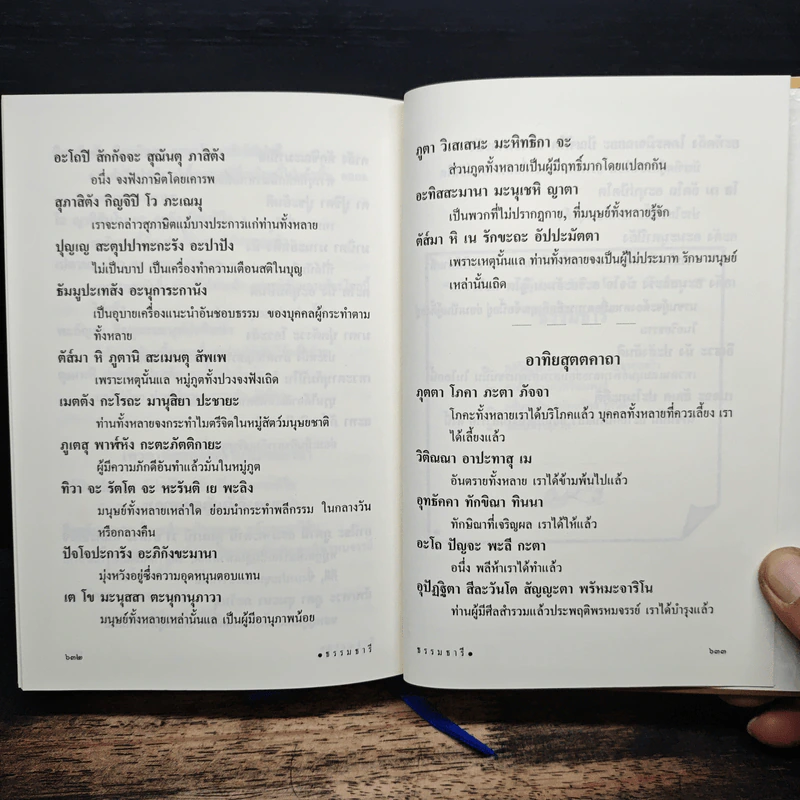 อะโถปิ สักกัจจะ สุณันตุ ภาสิตัง
อนึ่ง จงฟังภาษิตโดยเคารพ
สุภาสิตัง กิญจิปิ โว ภะเณมุ
เราจะกล่าวสุภาษิตแม้บางประการแก่ท่านทั้งหลาย
ปุญเญ สะตุปปาทะกะรัง อะปาปัง
ไม่เป็นบาป เป็นเครื่องทำความเตือนสติในบุญ
ธัมมูปะเทสัง อะนุการะกานัง
เป็นอุบายเครื่องแนะนำอันชอบธรรม ของบุคคลผู้กระทำตาม
ทั้งหลาย
ตัส๎มา หิ ภูตานิ สะเมนตุ สัพเพ
เพราะเหตุนั้นแล หมู่ภูตทั้งปวงจงฟังเถิด
เมตตัง กะโรถะ มานุสิยา ปะชายะ
ท่านทั้งหลายจงกระทำไมตรีจิตในหมู่สัตว์มนุษยชาติ
ภูเตสุ พาฬ๎หัง กะตะภัตติกายะ
ผู้มีความภักดีอันทำแล้วมั่นในหมู่ภูต
ทิวา จะ รัตโต จะ หะรันติ เย พะลิง
มนุษย์ทั้งหลายเหล่าใด ย่อมนำกระทำพลีกรรม ในกลางวัน
หรือกลางคืน
ปัจโจปะการัง อะภิกังขะมานา
มุ่งหวังอยู่ซึ่งความอุดหนุนตอบแทน
เต โข มะนุสสา ตะนุกานุภาวา
มนุษย์ทั้งหลายเหล่านั้นแล เป็นผู้มีอานุภาพน้อย
๖๓๒
• ธรรมธารี
ภูตา วิเสเสนะ มะหิทธิกา จะ
ส่วนภูตทั้งหลายเป็นผู้มีฤทธิ์มากโดยแปลกกัน
อะทิสสะมานา มะนุเชหิ ญาตา
เป็นพวกที่ไม่ปรากฏกาย, ที่มนุษย์ทั้งหลายรู้จัก
ตัส๎มา หิ เน รักขะถะ อัปปะมัตตา
เพราะเหตุนั้นแล ท่านทั้งหลายจงเป็นผู้ไม่ประมาท รักษามนุษย์
เหล่านั้นเถิด
อาทิยสุตตคาถา
ภุตตา โภคา ภะตา ภัจจา
โภคะทั้งหลายเราได้บริโภคแล้ว บุคคลทั้งหลายที่ควรเลี้ยง เรา
ได้เลี้ยงแล้ว
วิติณณา อาปะทาสุ เม
อันตรายทั้งหลาย เราได้ข้ามพ้นไปแล้ว
อุทธัคคา ทักขิณา ทินนา
ทักษิณาที่เจริญผล เราได้ให้แล้ว
อะโถ ปัญจะ พะลี กะตา
อนึ่ง พลีห้าเราได้ทำแล้ว
อุปัฏฐิตา สีละวันโต สัญญะตา พรัหมะจาริโน
ท่านผู้มีศีลสำรวมแล้วประพฤติพรหมจรรย์ เราได้บำรุงแล้ว
ธรรมธารี •
๖๓๓